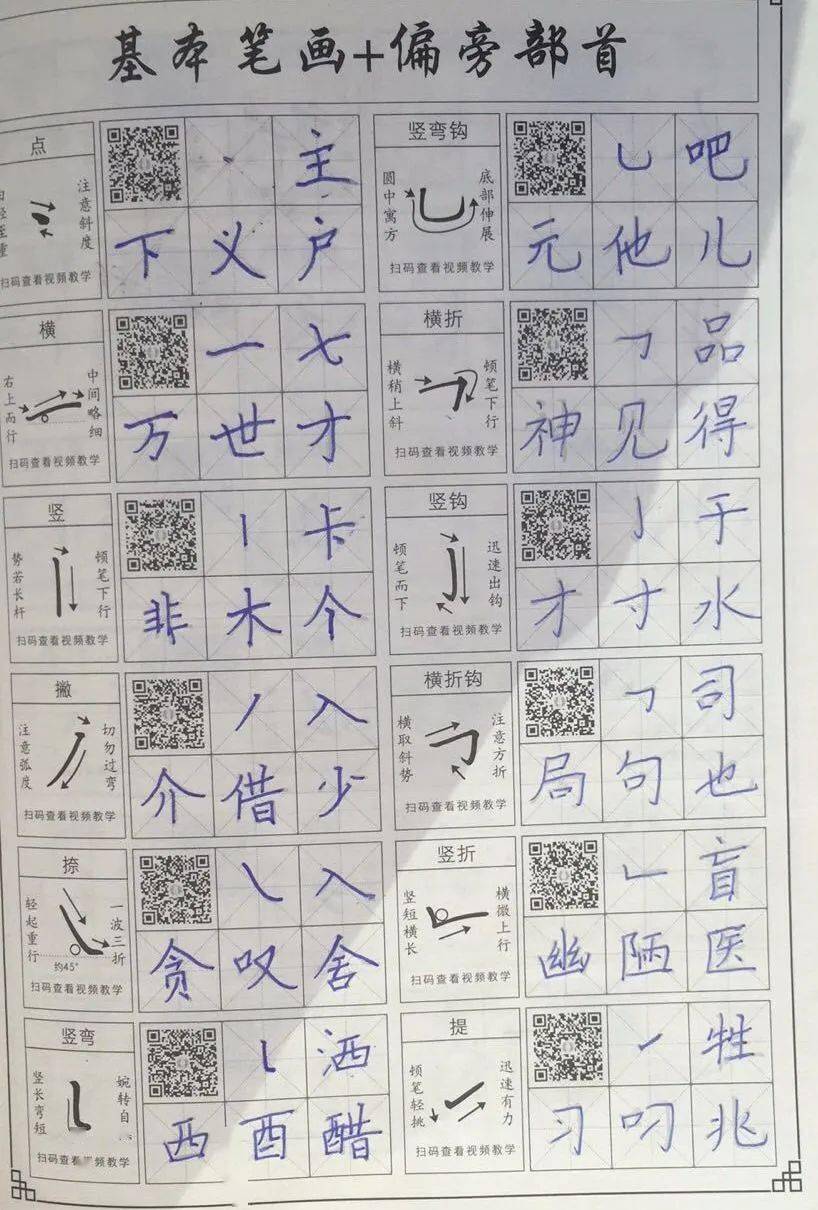 基本笔画+偏旁部首
点
注意斜度
扫码查看视频教学
丶 主
下 义 户
竖弯钩
圆中寓方
底部伸展
扫码查看视频教学
乚 吧
元 他 儿
横
右上而行
中间略细
扫码查看视频教学
一 七
万 世 才
横折
横稍上斜
顿笔下行
扫码查看视频教学
𠃍 品
神 见 得
竖
势若长杆
顿笔下行
扫码查看视频教学
丨 卡
非 木 个
竖钩
顿笔而下
迅速出钩
扫码查看视频教学
亅 于
才 寸 水
撇
注意弧度
切勿过弯
扫码查看视频教学
丿 入
介 借 少
横折钩
横取斜势
注意方折
扫码查看视频教学
𠃌 司
局 句 也
捺
轻起重行
一波三折
约45°
扫码查看视频教学
㇏ 入
贪 叹 舍
竖折
竖短横长
横微上行
扫码查看视频教学
𠃊 盲
幽 陋 医
竖弯
竖长弯短
婉转自
扫码查看视频教学
㇄ 洒
西 酉 醋
提
顿笔轻挑
迅速有力
扫码查看视频教学
㇀ 牲
习 叼 兆